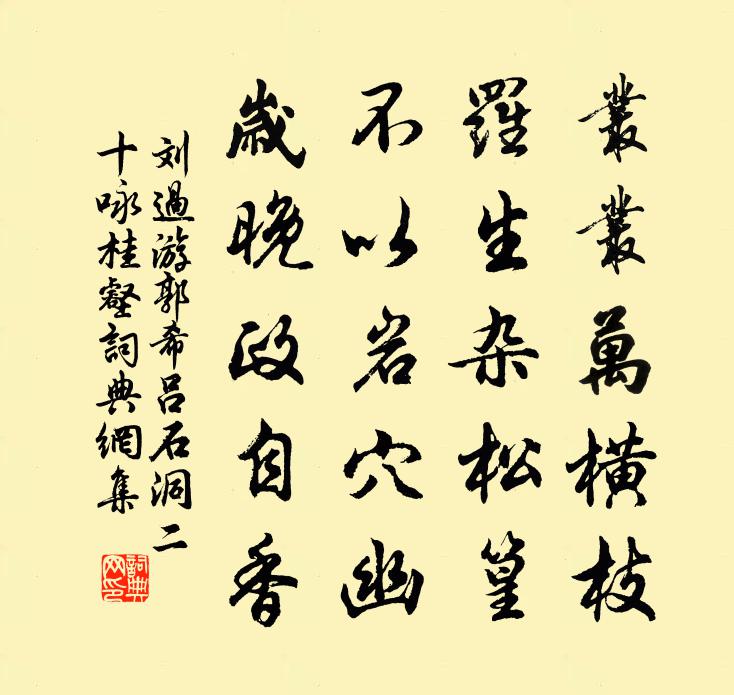 叢叢萬橫枝
羅生杂松篁
不以岩穴幽
歲晚政自香
刘過游郭希吕石洞二
十咏桂壑詞典網集
詞典網印